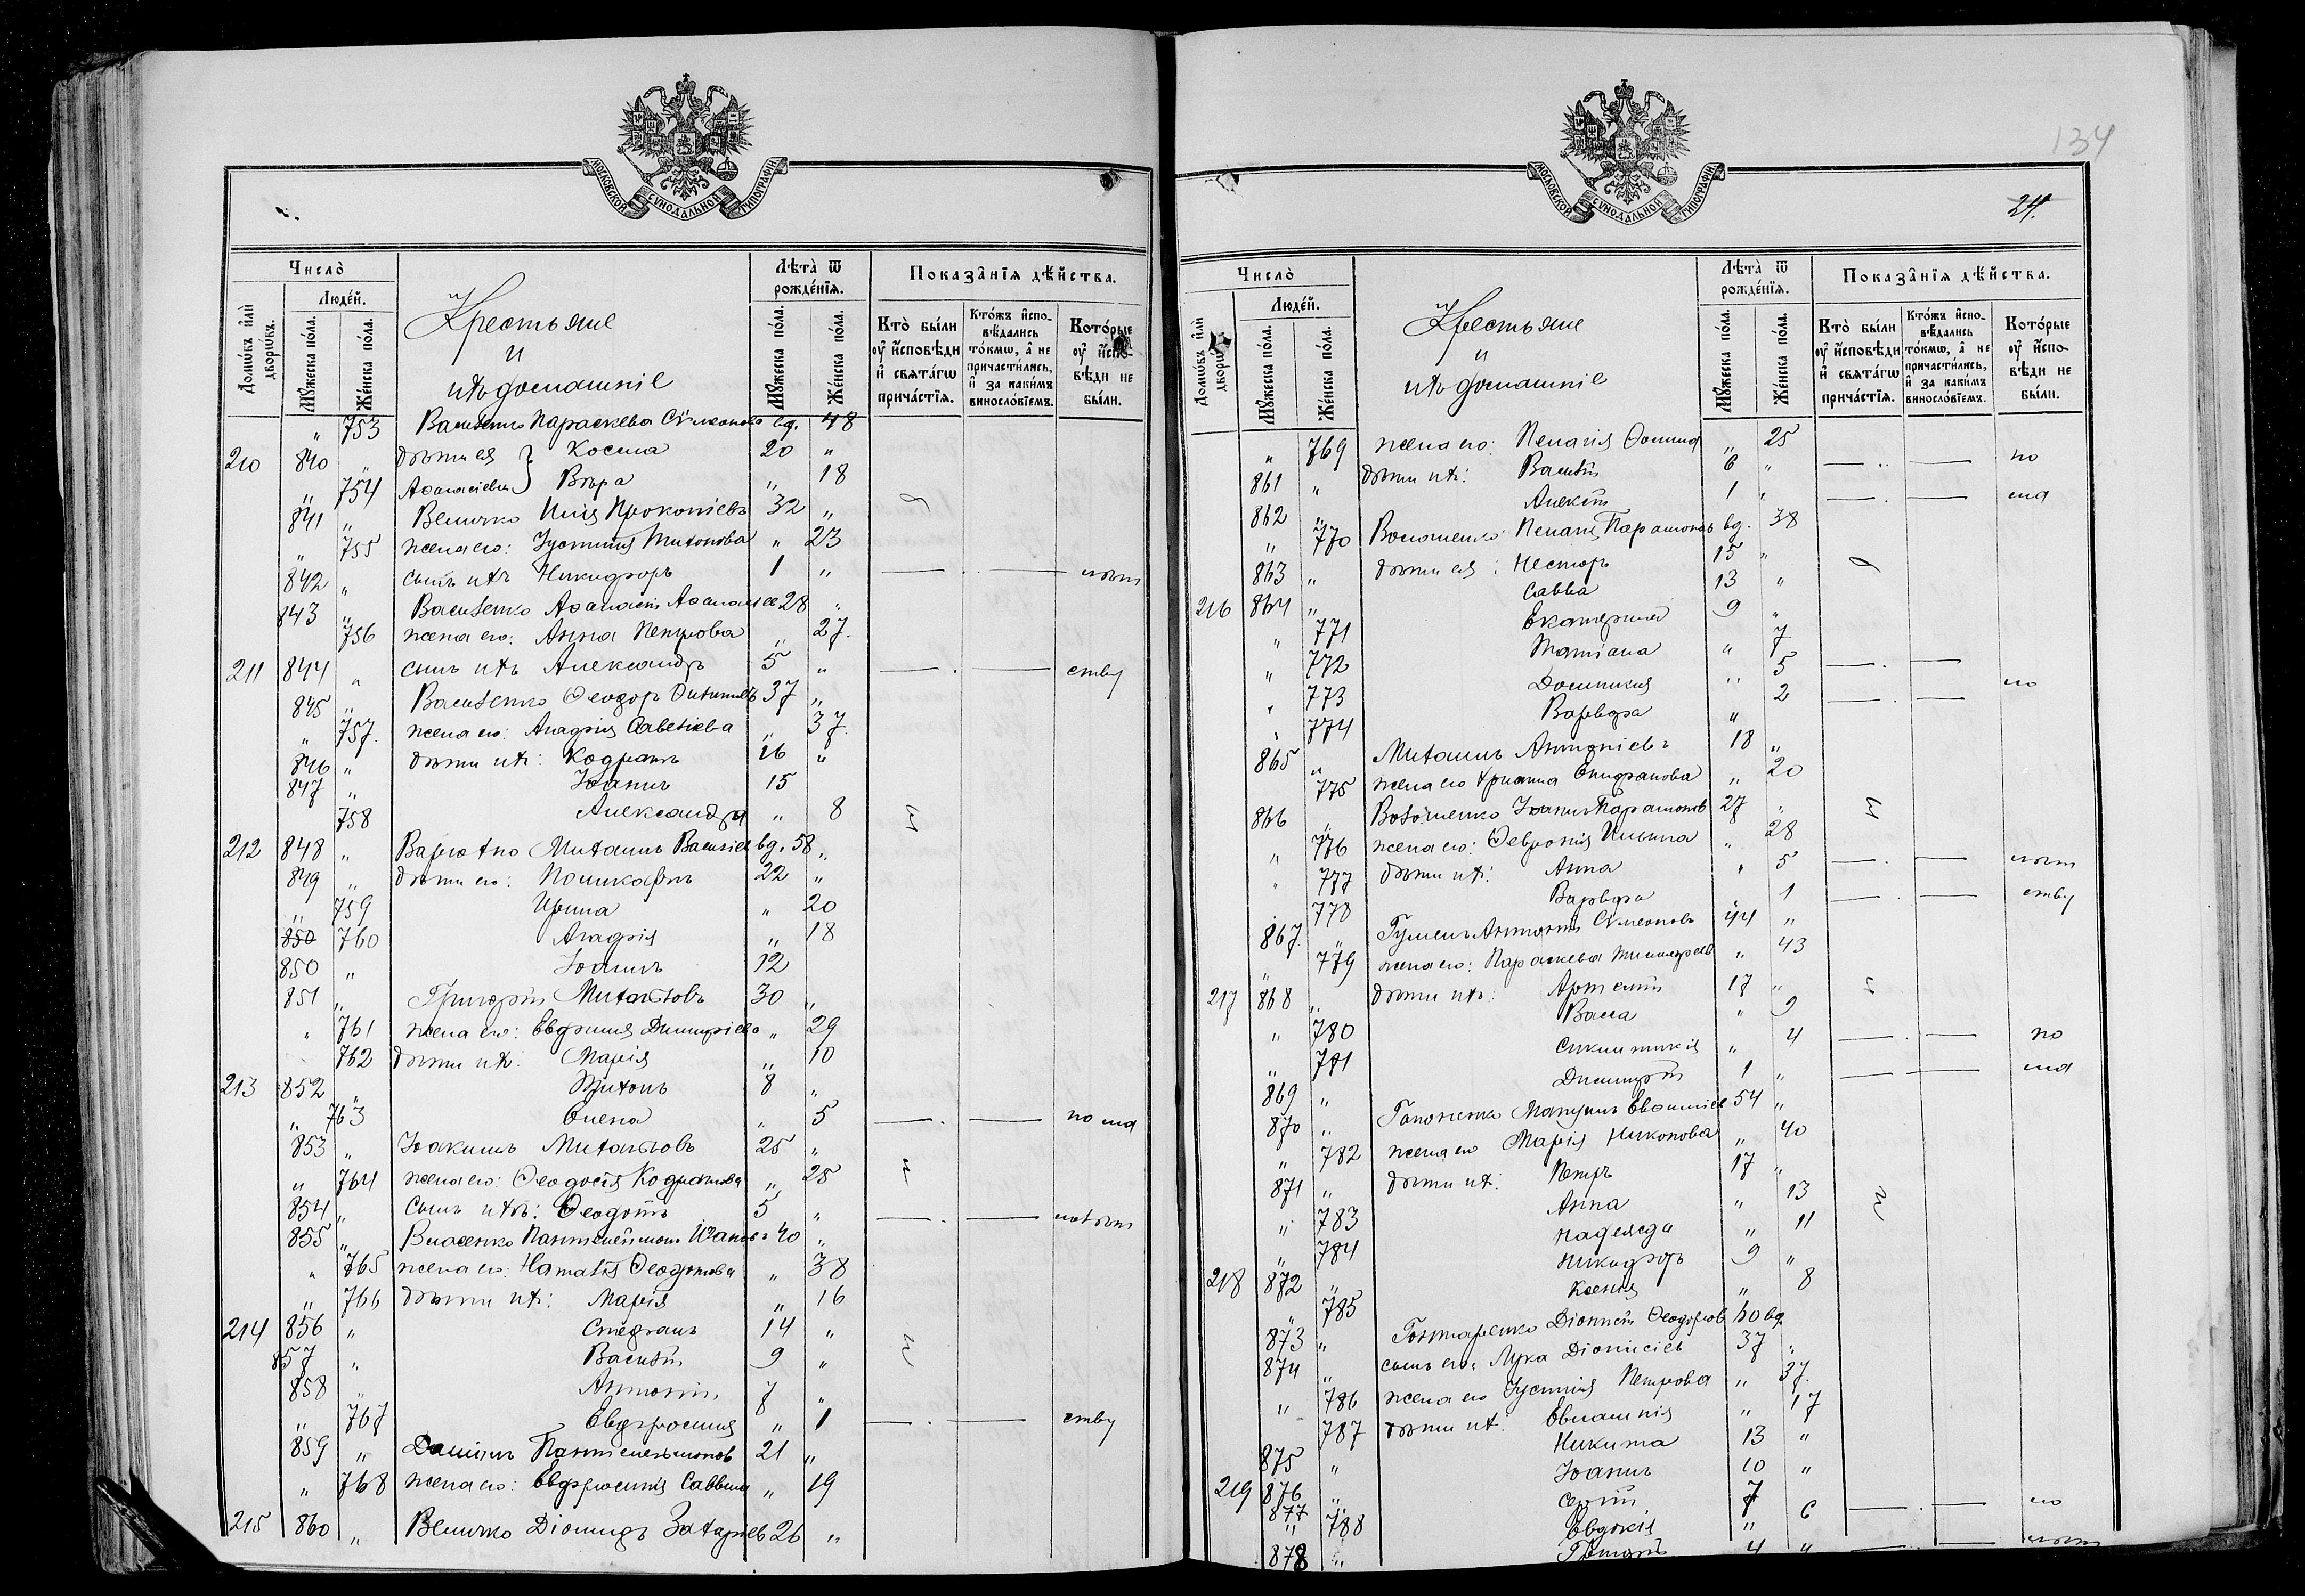 МОСКОВСКОЙ СѴНОДАЛЬНОЙ ТИПОГРАФІИ
Число̀
Людéй.
Домѡ́въ и҆лѝ дворѡ́въ.
Мꙋ́жеска по́ла.
Же́нска по́ла.
Крестьяне
и
ихъ домашніе
Лѣта̀ ѿ рожде́нїѧ.
Мꙋ́жеска по́ла.
Же́нска по́ла.
Показа̂нїѧ дѣ́йства.
Кто̀ бы́ли ᲂу҆ и҆сповѣди и҆ свѧта́гѡ прича́стїѧ.
Кто́жъ и҆спо-вѣ́дались то́кмѡ, а҆ не причасти́лись, и҆ за каки́мъ винослов́їемъ.
Кото́рые ᲂу҆ и҆спо-вѣди не бы́ли.
„ 753 Василенко Параскева Сѵмеонова вд. 48
210 840 „ дѣти ея } Косма 20 „
„ 754 Аѳанасіевы } Вѣра „ 18
841 „ Величко Илія Прокопіевъ 32 „
„ 755 жена его: Іустинія Тихонова „ 23
842 „ сынъ ихъ Никифоръ 1 „ лѣт
843 „ Василенко Аѳанасій Аѳанасіев 28 „
756 жена его: Анна Петрова „ 27.
211 844 „ сынъ ихъ Александръ 5 „ ству
845 „ Василенко Ѳеодоръ 37 „
„ 757. жена его: Агафія Савельева „ 37.
846 „ дѣти ихъ: Кодратъ 16 „
847 „ Іоаннъ 15
758 Александра „ 8
212 848 „ Михаилъ Василіев вд. 58 „
849 „ дѣти его: Поликарпъ 22 „
„ 759 Ирина „ 20
850 760 Агафія „ 18
850 „ Іоаннъ 12
851 „ Григорій Михайловъ 30 „
„ 761 жена его: Евфимія Димитріева „ 29
762 дѣти ихъ: Марія „ 10
213 852 „ Тихонъ 8 „
„ 763 Елена „ 5 по мал
853 „ Іоакимъ Михайловъ 25 „
„ 764 жена его: Ѳеодосія Кодратова „ 25
854 „ сынъ ихъ: Ѳеодотъ 5 „
855 „ Власенко Пантелеимонъ 40 „
„ 765 жена его: Наталія Ѳеодотова „ 38
„ 766 дѣти ихъ: Марія „ 16
214 856 „ Стефанъ 14 „
857 „ Василій 9 „
858 „ Антоній 7 „
„ 767 Евфросинія „ 1 ству
859 „ Даніилъ Пантелеимонов 21 „
„ 768 жена его: Евфросинія Саввина „ 19
215 860 „ Величко Діомидъ Захаріев 26 „
134
24.
МОСКОВСКОЙ СѴНОДАЛЬНОЙ ТИПОГРАФІИ
Число̀
Людéй.
Домѡ́въ и҆лѝ дворѡ́въ.
Мꙋ́жеска по́ла.
Же́нска по́ла.
Крестьяне
и
ихъ домашніе
Лѣта̀ ѿ рожде́нїѧ.
Мꙋ́жеска по́ла.
Же́нска по́ла.
Показа̂нїѧ дѣ́йства.
Кто̀ бы́ли ᲂу҆ и҆сповѣди и҆ свѧта́гѡ прича́стїѧ.
Кто́жъ и҆спо-вѣ́дались то́кмѡ, а҆ не причасти́лись, и҆ за каки́мъ винослов́їемъ.
Кото́рые ᲂу҆ и҆спо-вѣди не бы́ли.
„ 769 жена его: Пелагія Ѳомина „ 25
861 „ дѣти ихъ: Василій 6 „ по
862 „ Алексѣй 1 „ мал
„ 770 Волошенко Пелагія Парамонов вд. 38
863 „ дѣти ея: Несторъ 15 „
216 864 „ Савва 13 „
„ 771 Екатерина 9 „
„ 772 Татіана „ 7
„ 773 Домникія „ 5
„ 774 Варвара „ 2 по
865 „ Михаилъ Антоніевъ 18 „
775 жена его Епифанова „ 20
866 „ Волошенко Іоаннъ Парамонов 27 „
„ 776 жена его: Февронія Ильина „ 28
„ 777 дѣти ихъ: Анна „ 5 лѣт
778 Варвара „ 1 ству
867. „ Антоній Сѵмеоновъ 44 „
„ 779 жена его: Параскева „ 43
217 868 „ дѣти ихъ: Артемій 17 „
„ 780 Васса „ 9
„ 781 Сѵнклитикія „ 4 по
869 „ Димитрій 1 „ мал
870 „ Гапоненко 54 „
„ 782 жена его Марія Никонова „ 40
871 „ дѣти ихъ: Петръ 17 „
„ 783 Анна „ 13
„ 784 Надежда „ 11
218 872 „ Никифоръ 9 „
„ 785 Ксенія „ 8
873 „ Гончаренко Діонисій Ѳеодоров 60 вд.
874 „ сынъ его: Лука Діонисіев 37 „
„ 786 жена его Іустинія Петрова „ 37.
787 дѣти ихъ: Евлампія „ 17
875 „ Никита 13 „
219 876 „ Іоаннъ 10 „
877 „ Сергій 7
„ 788 Евдокія „ 6 по
878 „ Григорій 4 „